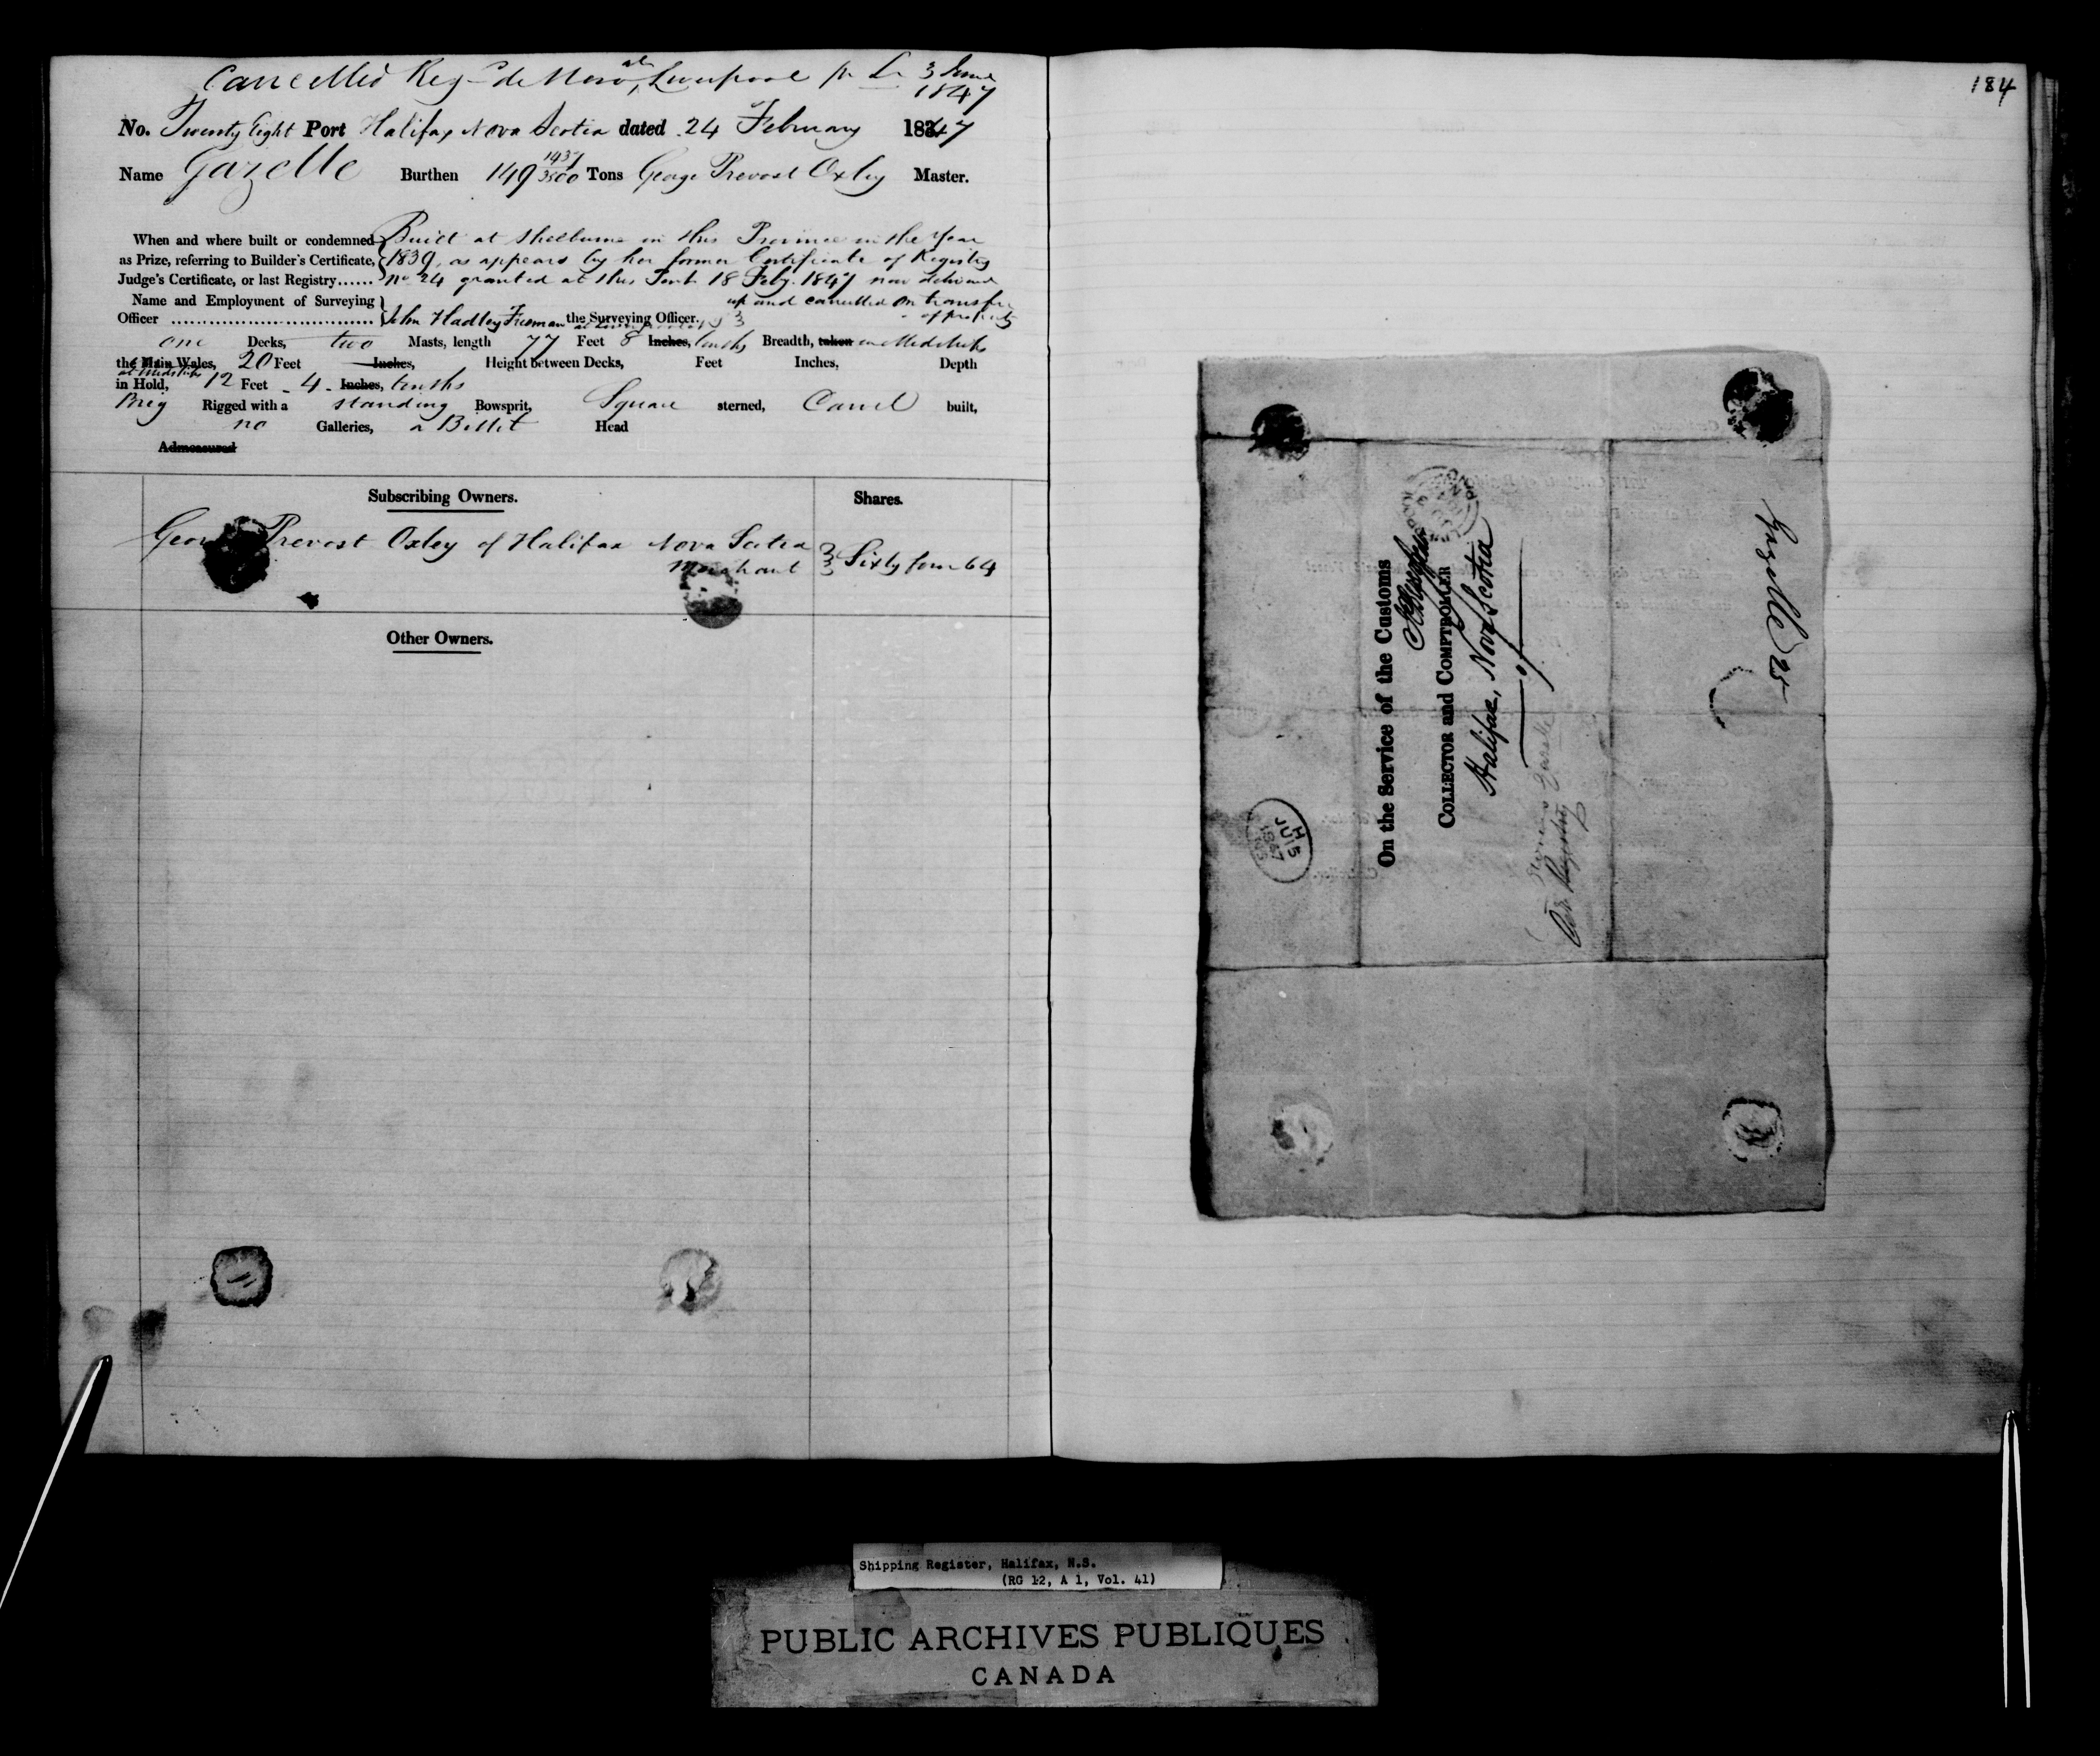 Cancelled Reg de Novo at Liverpool pr Lr 3 June
1847
No. Twenty Eight Port Halifax Nova Scotia dated 24 February 1847
Name Gazelle Burthen 149 1437/3500 Tons George Prevost Oxley Master.
When and where built or condemned Built at Shelburne in this Province in the Year
as Prize, referring to Builder's Certificate, 1839, as appears by her former Certificate of Registry
Judge's Certificate, or last Registry...... No 24 granted at this Port 18 Feby. 1847 now delivered
up and cancelled on transfer
of property
Name and Employment of Surveying
Officer John Hadley Freeman the Surveying Officer.
one Decks, two Masts, length 77 Feet 8 Inches, tenths Breadth, taken in Midships
the Main Wales, 20 Feet Inches, Height between Decks, Feet Inches, Depth
at Midships
in Hold, 12 Feet - 4 - Inches, tenths
Brig Rigged with a standing Bowsprit, Square sterned, Carvel built,
no Galleries, a Billet Head
Admeasured
Subscribing Owners. Shares.
George Prevost Oxley of Halifax Nova Scotia
Merchant Sixty four 64
Other Owners.
184
Gazelle 25
On the Service of the Customs
COLLECTOR and COMPTROLLER
Halifax, Nova Scotia
of
Registry
H
JU 15
1847
Shipping Register, Halifax, N.S.
(RG 12, A 1, Vol. 41)
PUBLIC ARCHIVES PUBLIQUES
CANADA